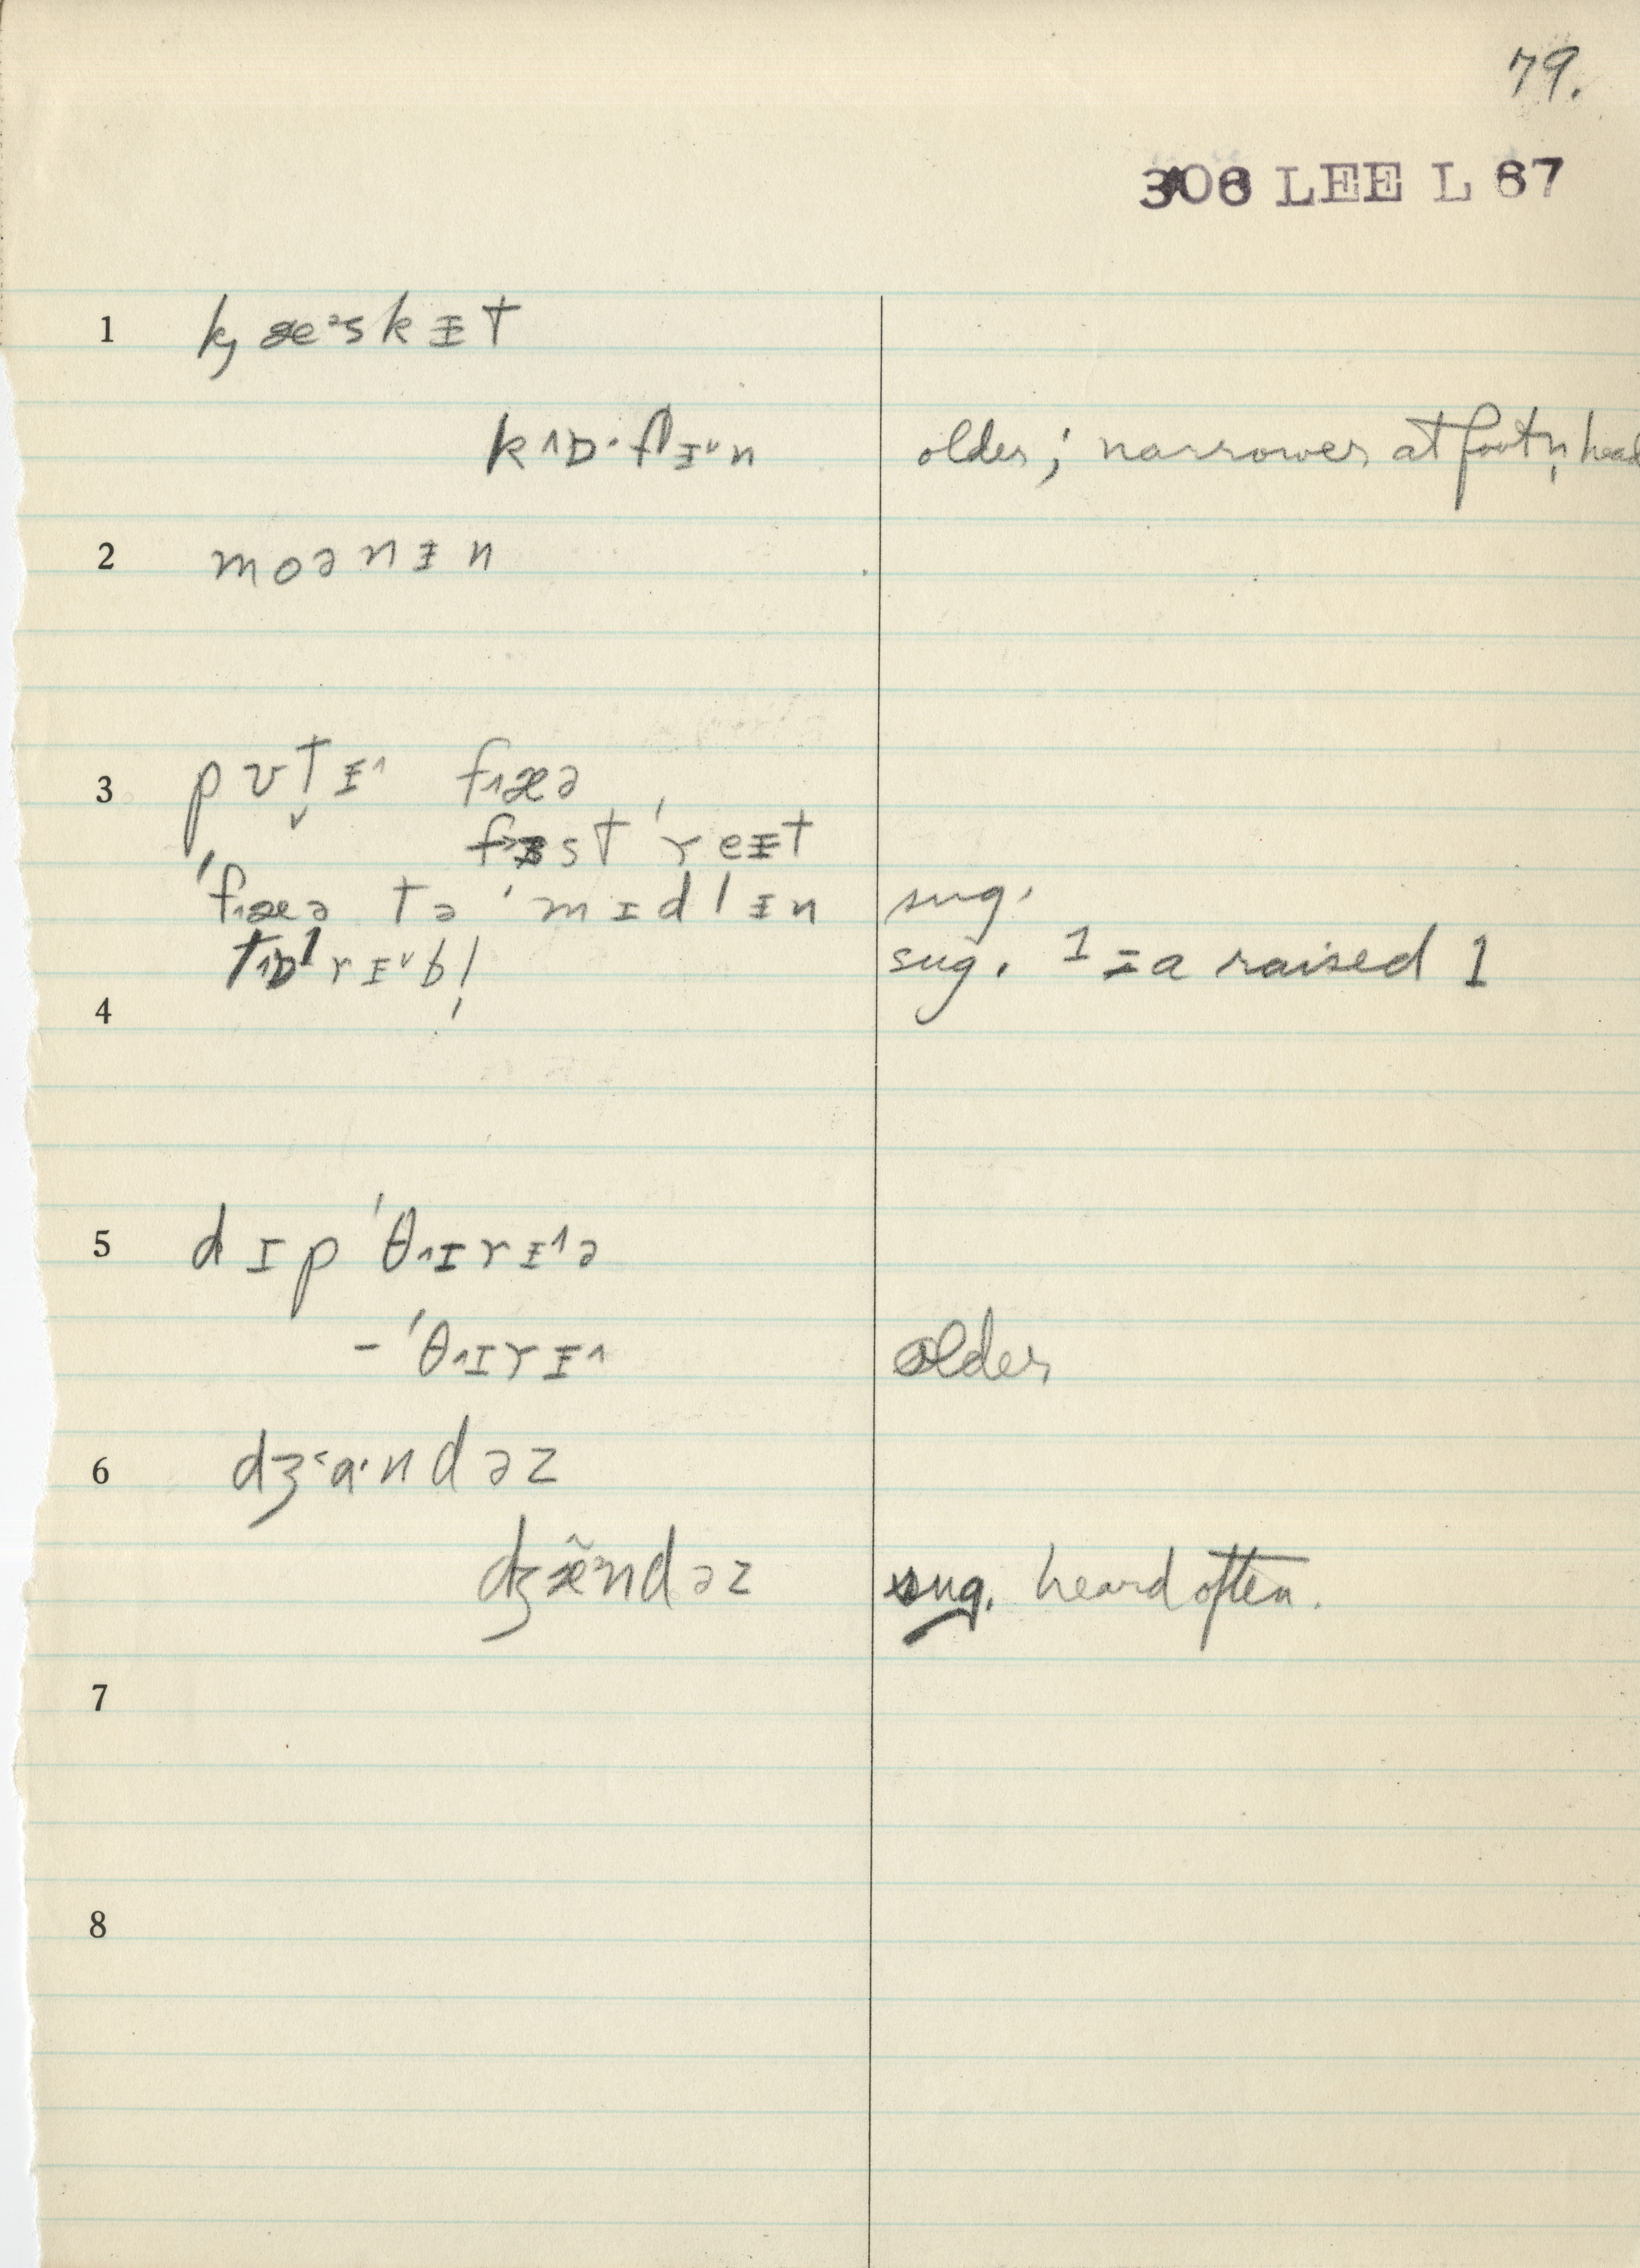 79.
308 LEE L 67
1 k̡æᵊskᵻt
k˄ɒ·fᵻ˅n older; narrower at foot n̩ head
2 moənᵻn
3 pʊt̬ᵻ˄ f˄æə
fɜst ˈreᵻt
ˈf˄æə tə ˈmɪdlᵻn sug.
t˄ɒˡrᵻ˅bl̩ sug. ˡ = a raised l
4
5 dɪpˈθ˄ɪrᵻ˄ə
-ˈθ˄ɪrᵻ˄ older
6 dʒ˂a·ndəz
dʒæ̃ᵊndəz sug. heard often.
7
8